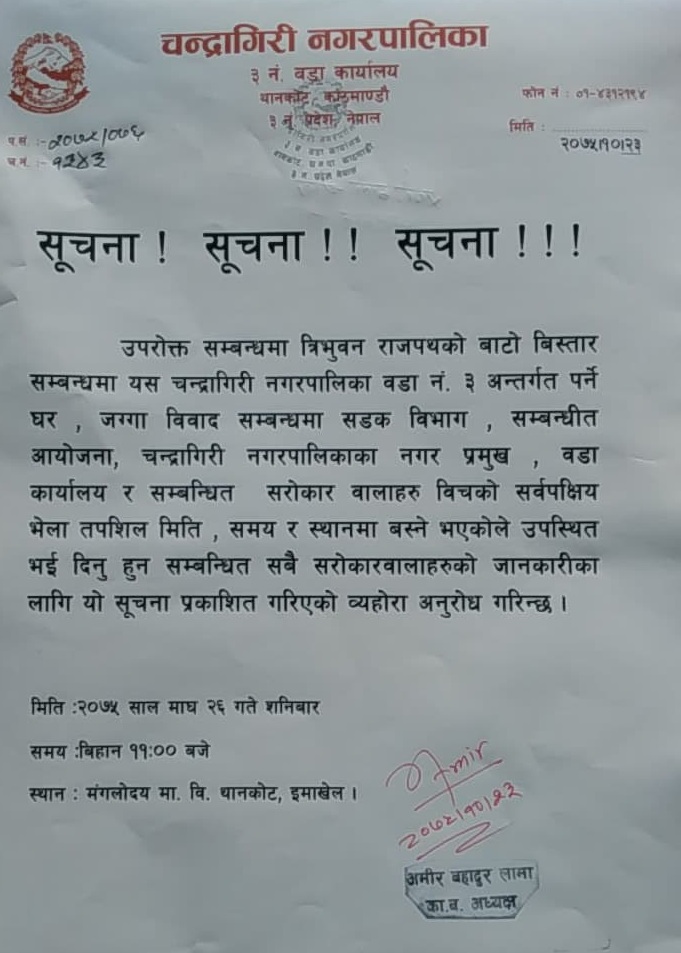 चन्द्रागिरी नगरपालिका
३ नं. वडा कार्यालय
थानकोट, काठमाण्डौ
३ नं. प्रदेश, नेपाल
फोन नं : ०१-४३१२१९४
प.सं. :- २०७५/०७६
च.नं. :- १२४३
मिति : ..................
२०७५।१०।२३
सूचना ! सूचना ! ! सूचना ! ! !
उपरोक्त सम्बन्धमा त्रिभुवन राजपथको बाटो बिस्तार
सम्बन्धमा यस चन्द्रागिरी नगरपालिका वडा नं. ३ अन्तर्गत पर्ने
घर , जग्गा विवाद सम्बन्धमा सडक विभाग , सम्बन्धीत
आयोजना, चन्द्रागिरी नगरपालिकाका नगर प्रमुख , वडा
कार्यालय र सम्बन्धित सरोकार वालाहरु विचको सर्वपक्षिय
भेला तपशिल मिति , समय र स्थानमा बस्ने भएकोले उपस्थित
भई दिनु हुन सम्बन्धित सबै सरोकारवालाहरुको जानकारीका
लागि यो सूचना प्रकाशित गरिएको व्यहोरा अनुरोध गरिन्छ ।
मिति :२०७५ साल माघ २६ गते शनिबार
समय :बिहान ११:०० बजे
स्थान : मंगलोदय मा. वि. थानकोट, इमाखेल ।
Amir
२०७५।१०।२३
अमीर बहादुर लामा
का.व. अध्यक्ष